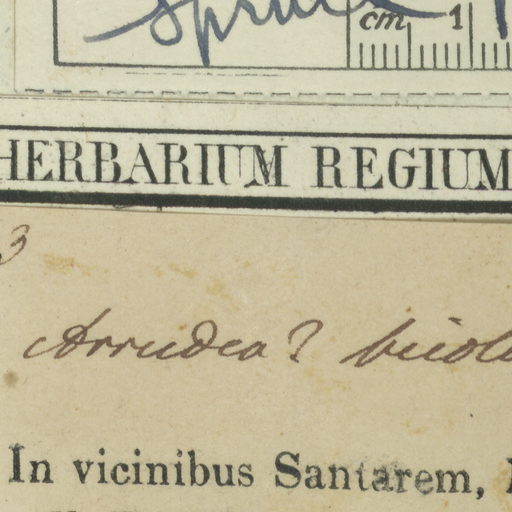 Spruce
cm 1
HERBARIUM REGIUM
3
Arrudea? bicolo
In vicinibus Santarem,